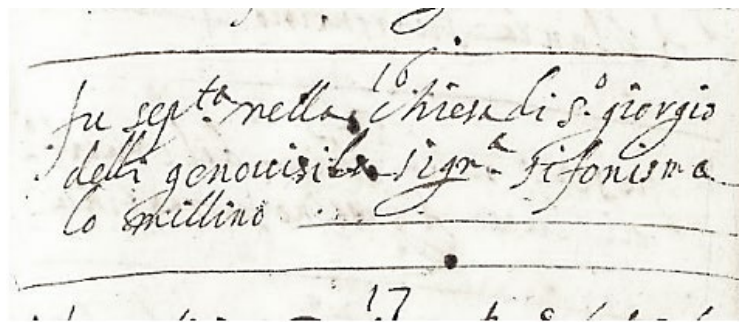 16
fu sep.ta nella Chiesa di S.o giorgio
delli genovisi la sigr.a sifonisma
lo millino
17